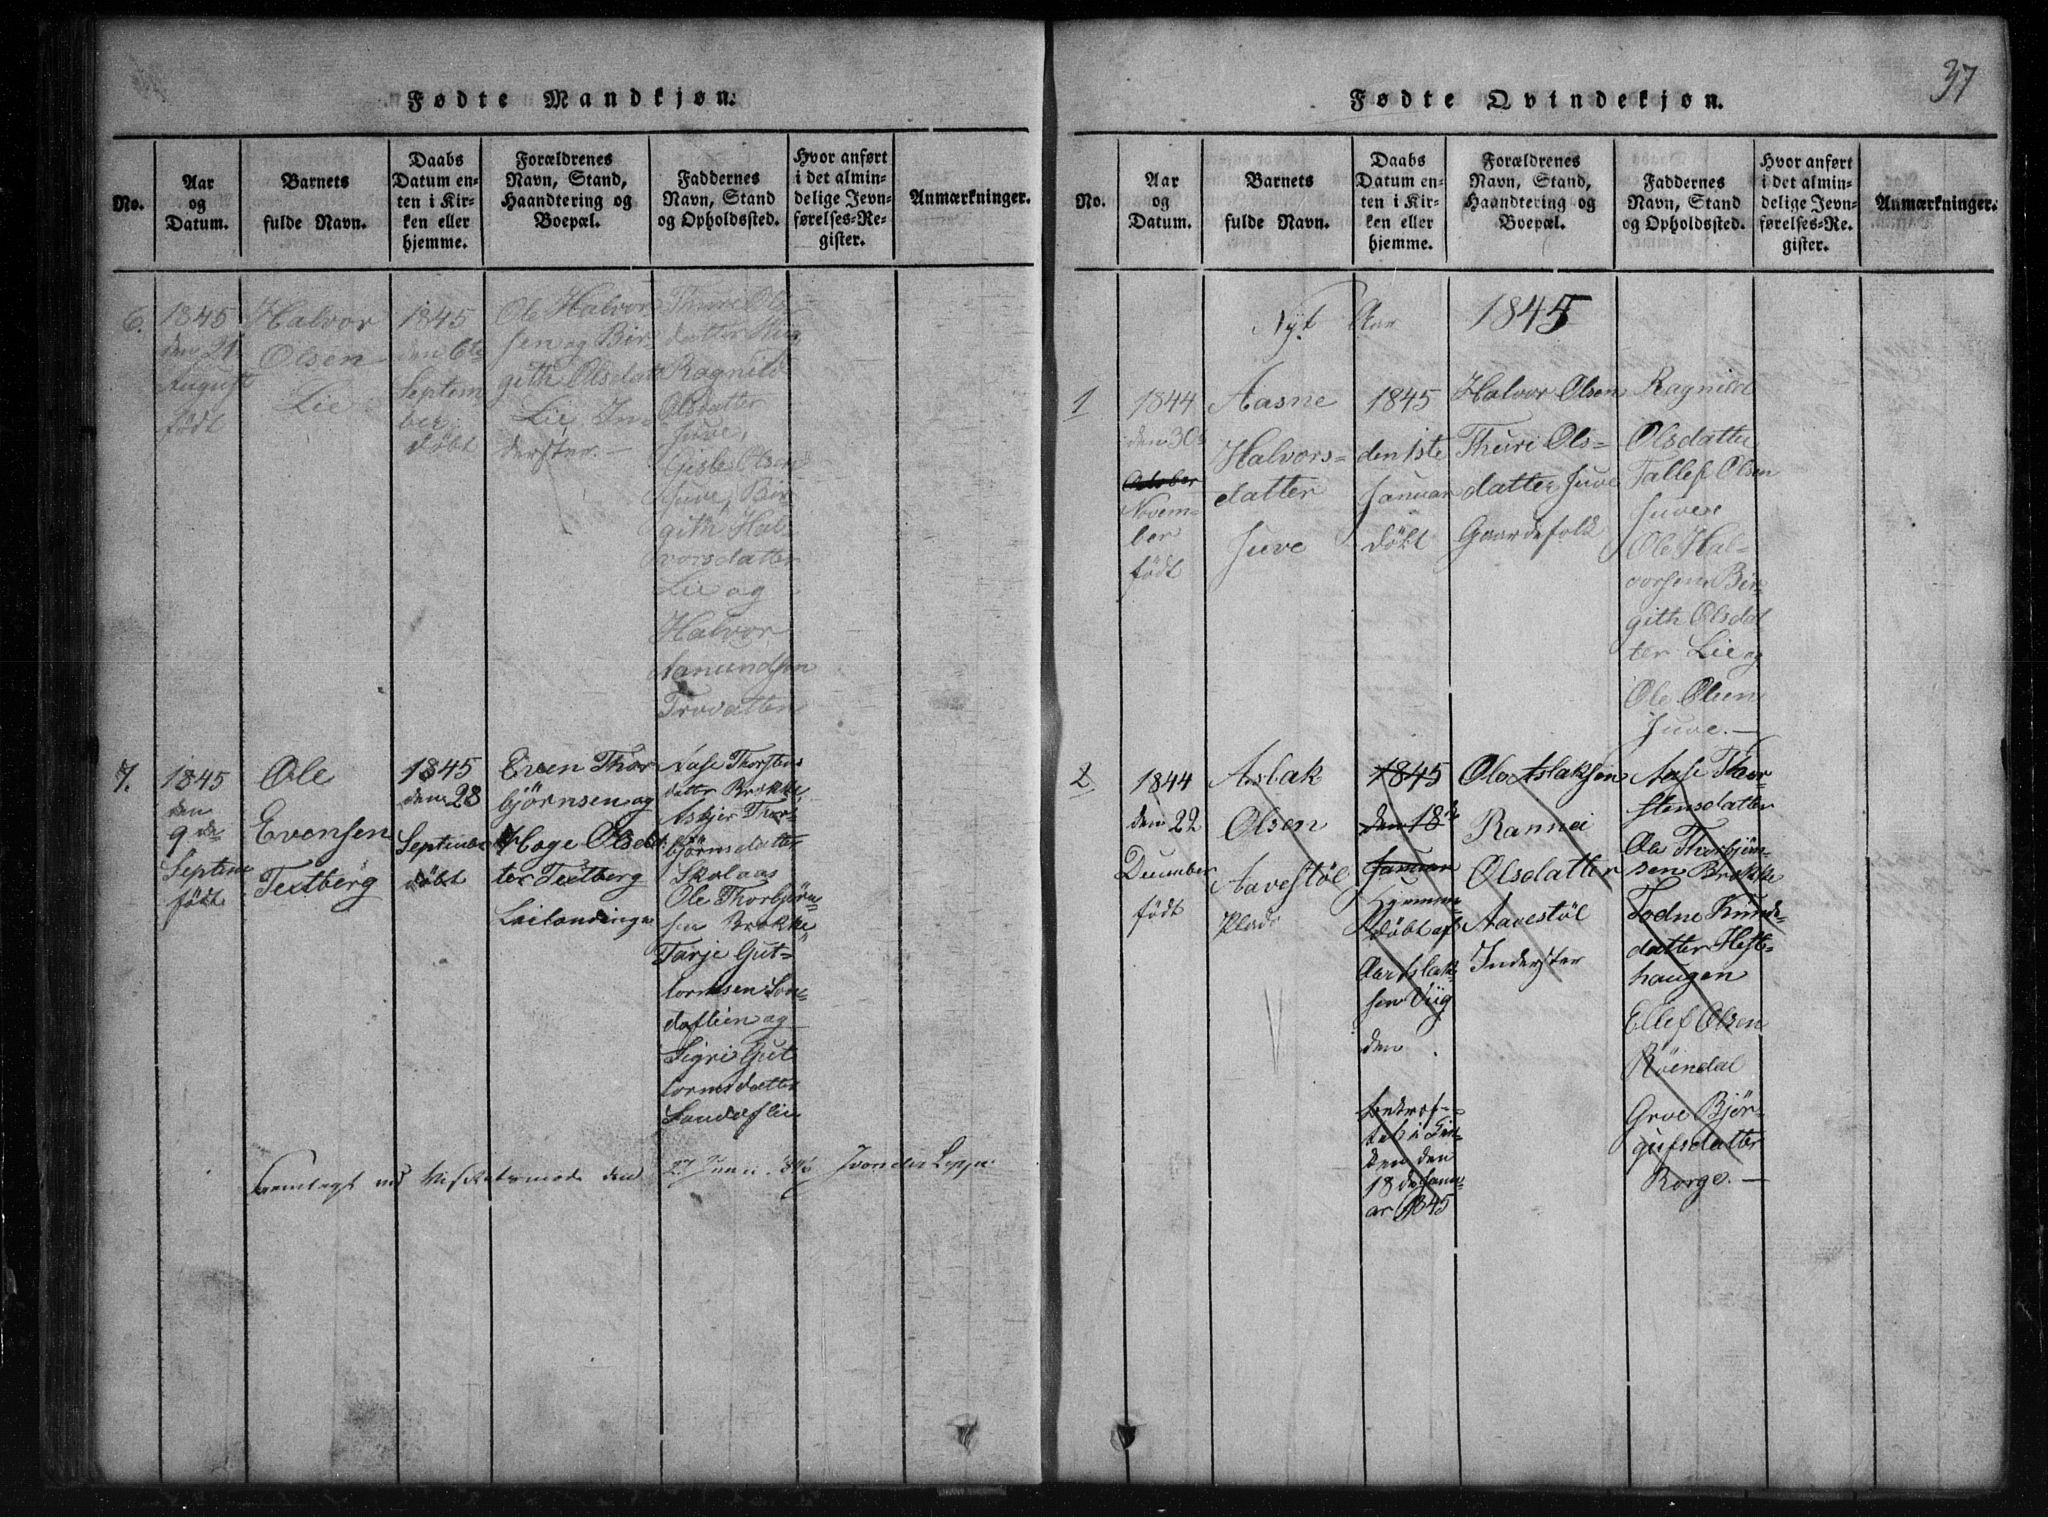 Fødte Mandkjøn.
No.
Aar
og
Datum.
Barnets
fulde Navn.
Daabs
Datum en-
ten i Kir-
ken eller
hjemme.
Forældrenes
Navn, Stand,
Haandtering og
Boepæl.
Faddernes
Navn, Stand
og Opholdssted.
Hvor anført
i det almin-
delige Jevn-
førelses-Re-
gister.
Anmærkninger.
6.
1845
den 21
August
født
Halvor
Olsen
Lie
1845
den 6te
Septem
ber
døbt
Ole Halvor
sen og Bir-
gith Olsdatt
Lie In-
derster.
Thuri Ols-
datter
Ragnild
Olsdatter
Juve,
Gisle Olsen
Juve, Bir-
gith Hal-
vorsdatter
Lie og
Halvor
Aanundsen
Trovatten
7.
1845
den
9de
Septem
født
Ole
Evensen
Textberg
1845
den 28
September
døbt
Even Thor
bjørnsen og
Aage Olsdat
ter Textberg
Leilændinge
Aase Thorstens
datter Brokke,
Asbjer Thor-
bjørnsdatter
Skolaas
Ole Thorbjørn-
sen Brokke
Tarje Gut-
tormsen Son-
deflien og
Sigri Gut
tormsdatter
Sondeflie
Fremlagt ved Visitatsmøde den 27 Juni 1846
Fødte Qvindekjøn.
37
No.
Aar
og
Datum.
Barnets
fulde Navn.
Daabs
Datum en-
ten i Kir-
ken eller
hjemme.
Forældrenes
Navn, Stand,
Haandtering og
Boepæl.
Faddernes
Navn, Stand
og Opholdssted.
Hvor anført
i det almin-
delige Jevn-
førelses-Re-
gister.
Anmærkninger.
Nyt Aar 1845
1
1844
den 30
October
Novem-
ber
født
Aasne
Halvors-
datter
Juve
1845
den 1ste
Januar
døbt
Halvor Olsen
Thuri Ols-
datter Juve
Gaardefolk
Ragnild
Olsdatter
Tallef Olsen
Juve
Ole Hal-
vorsen Bir-
gith Olsdat
ter Lie og
Ole Olsen
Juve.
2
1844
den 22
December
født
Aslak
Olsen
Aavestøl
Plads
1845
den 18de
Januar
hjemme
døbt af
Ole Aslak-
sen Viig
den
bekræf-
tet i Kir-
ken den
18de Janu-
ar 1845
Ole Aslaksen
Rannei
Olsdatter
Aavestøl
Inderster
Aase Thor-
stensdatter
Ole Thorbjørn-
sen Brokke
Todne Knuds-
datter Heft-
haugen
Ellef Olsen
Røendal
Groe Bjør-
gufsdatter
Rorge.